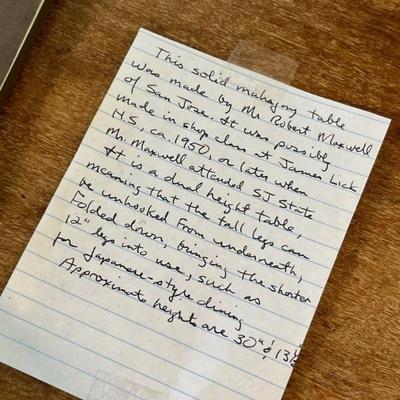 This solid mahogany table
was made by Mr. Robert Maxwell
of San Jose. It was possibly
made in shop class at James Lick
H.S., ca. 1950, or later when
Mr. Maxwell attended SJ State
It is a dual height table,
meaning that the tall legs can
be unhooked from underneath,
folded down, bringing the shorter
12" legs into use, such as
for Japanese-style dining
Approximate heights are 30" & 13½"